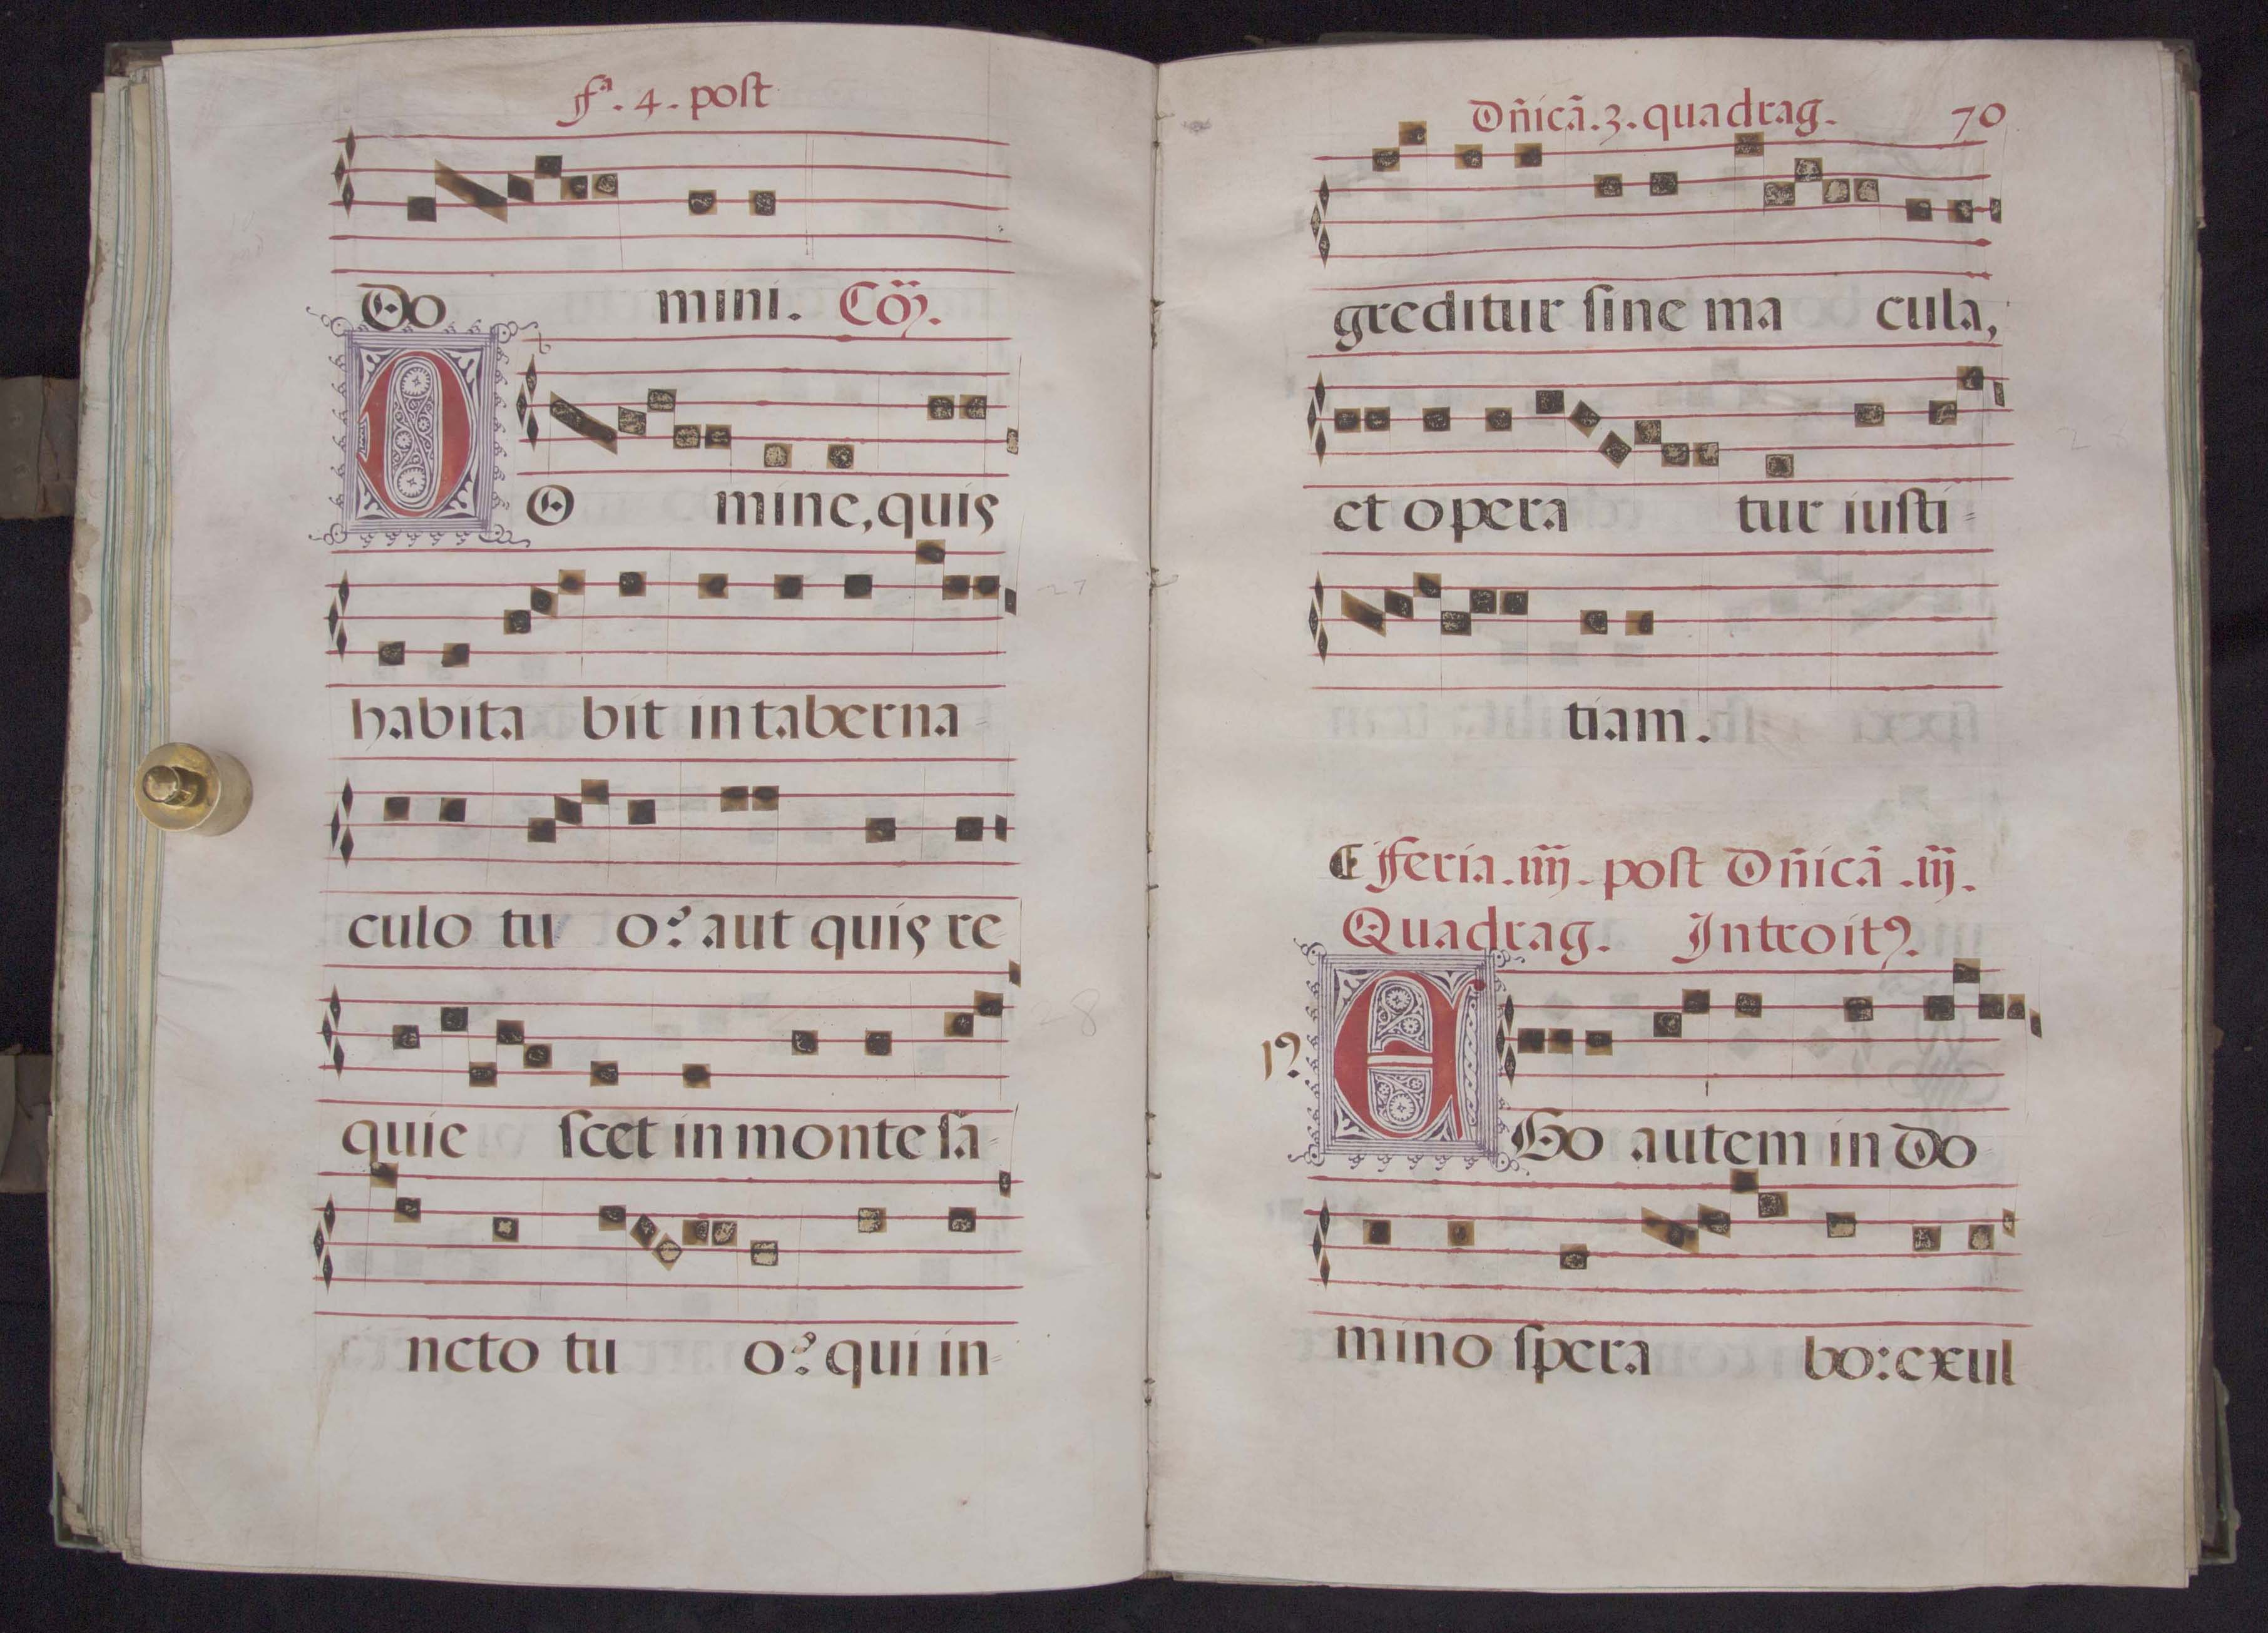 fª. 4. post
Do mini. Cõȝ.
DO mine, quis
habita bit in taberna=
culo tu o? aut quis re
quie scet in monte sa=
ncto tu o? qui in=
Dñicã. 3. quadrag. 70
greditur sine ma cula,
et opera tur iusti=
tiam.
feria. iiij. post Dñicã. iij.
Quadrag. Introitꝰ.
EGo autem in Do=
mino spera bo: exul